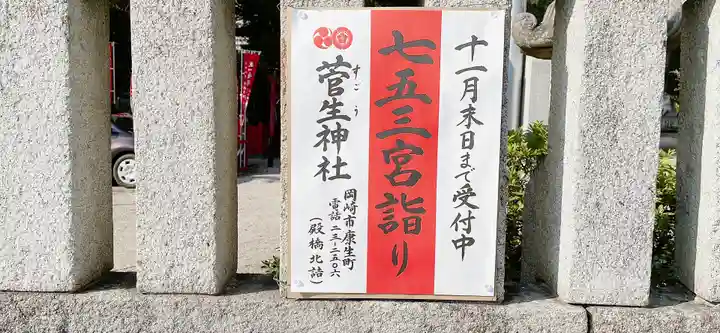 十一月末日まで受付中
七五三宮詣り
菅生神社
すごう
岡崎市康生町
電話 二三-二五〇六
(殿橋北詰)